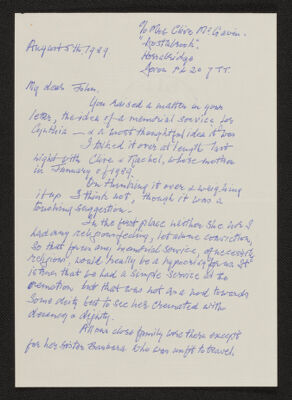 c/o Mrs Clive McGavin.
"Dostabrook",
Horrabridge
August 5th 1989
Devon PL20 7TT.
My dear John,
You raised a matter in your
letter, the idea of a memorial service for
Cynthia — & a most thoughtful idea it was
I talked it over at length last
night with Clive & Rachel, whose mother
in January of 1989.
On thinking it over & weighing
it up I think not, though it was a
touching suggestion.
In the first place neither she nor I
had any religious feeling, let alone conviction,
so that for us any memorial service, of necessity
religious, would really be a hypocrisy for us. It
is true that we had a simple service at the
cremation but that was not as a nod towards
Some deity but to see her cremated with
decency & dignity.
All our close family were there except
for her sister Barbara who was unfit to travel